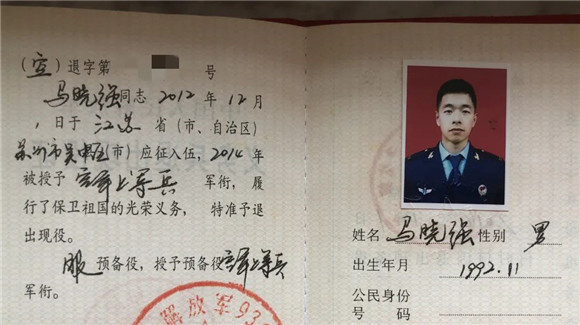 （宣）退字第 号
马晓强同志 2012 年 12 月
，日于 江苏 省（市、自治区）
苏州市吴中区（市）应征入伍，2014 年
被授予 空军上等兵 军衔，履
行了保卫祖国的光荣义务， 特准予退
出现役。
服 预备役，授予预备役空军上等兵
军衔。
解放军93
姓名 马晓强 性别 男
出生年月 1992.11
公民身份
号 码